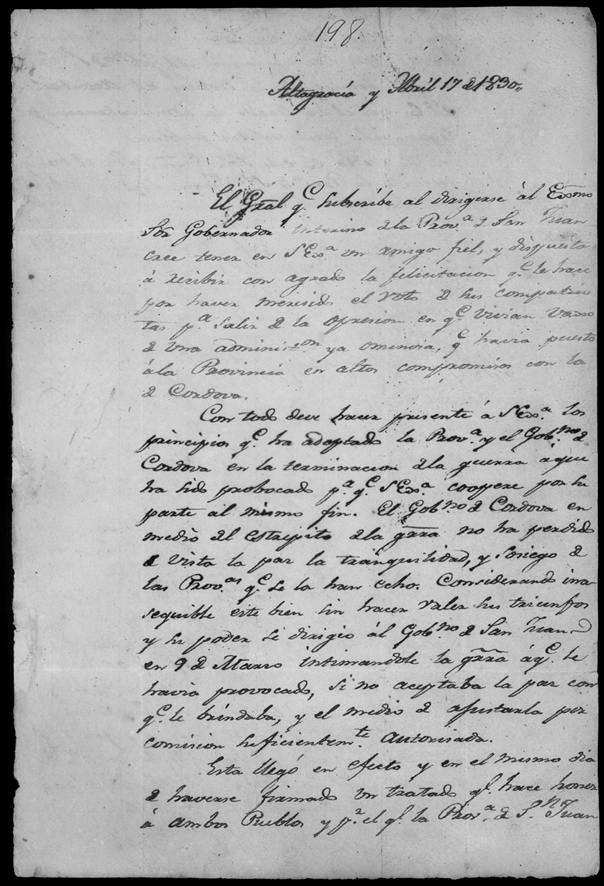 198.
Altagracia y Abril 17 d 1830,,
El Gral q.e subscribe al dirigirse al Exmo
Sor Gobernador interino d la Prov.a d San Juan
cree tener en S Ex.a un amigo fiel, y dispuesto
á recibir con agrado la felicitacion q.e le hace
por haver meresido el voto d sus compatrio
tas p.a Salir d la opresion en q.e vivian vaxo
d una administ.on ya ominosa, q.e havia puesto
á la Provincia en altos compromisos con la
d Cordova.
Con todo deve hacer presente á S Ex.a los
principios q.e ha adoptado la Prov.a y el Gob.no d
Cordova en la terminacion d la guerra aque
ha sido probocado p.a q.e S Ex.a coopere por su
parte al mismo fin. El Gob.no d Cordova en
medio del estrepito d la grra no ha perdido
d vista la paz la tranquilidad, y sosiego d
las Prov.as q.e se la han echo. Considerando ina
sequible este bien sin hacer valer sus triunfos
y su poder se dirigio al Gob.no d San Juan
en 9 d Marzo intimandole la grra á q.e le
havia provocado, si no aceptaba la paz con
q.e le brindaba, y el medio d ajustarla por
comision suficientem.te autorisada.
Esta llegó en efecto y en el mismo dia
d haverse firmado un tratado q.e hace honor
á ambos Pueblos y p.r el q.e la Prov.a d S.n Juan